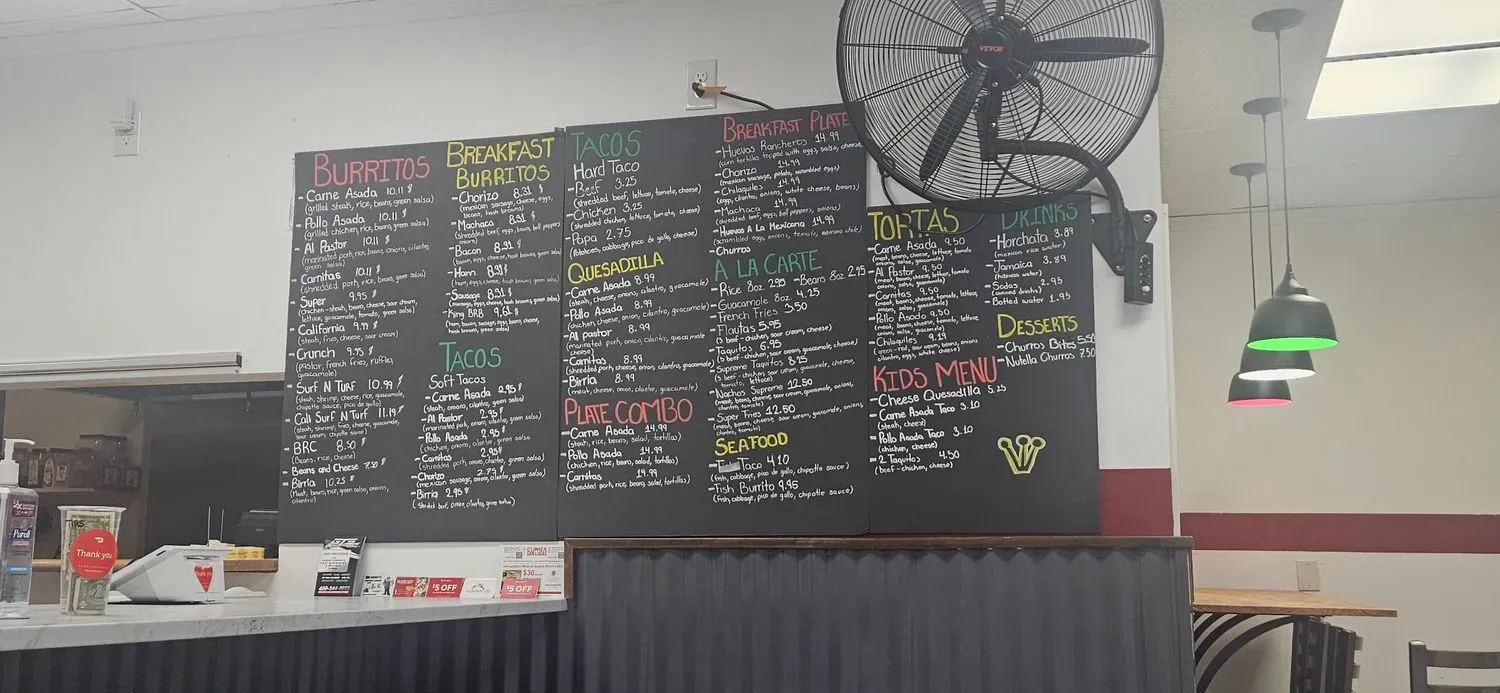 BURRITOS
- Carne Asada 10.11 $
(grilled steak, rice, beans, green salsa)
- Pollo Asada 10.11 $
(grilled chicken, rice, beans, green salsa)
- Al Pastor 10.11 $
(marinated pork, rice, beans, onions, cilantro,
green salsa)
- Carnitas 10.11 $
(shredded pork, rice, beans, green salsa)
- Super 9.95 $
(chicken-steak, beans, cheese, sour cream,
lettuce, guacamole, tomato, green salsa)
- California 9.79 $
(steak, fries, cheese, sour cream)
- Crunch 9.75 $
(pastor, french fries, ruffles,
guacamole)
- Surf N Turf 10.99 $
(steak, shrimp, cheese, rice, guacamole,
chipotle sauce, pico de gallo)
- Cali Surf N Turf 11.19 $
(steak, shrimp, fries, cheese, guacamole,
sour cream, chipotle sauce)
- BRC 8.50 $
(Beans, rice, cheese)
- Beans and Cheese 7.50 $
- Birria 10.25 $
(Meat, beans, rice, green salsa, onions,
cilantro)
BREAKFAST
BURRITOS
- Chorizo 8.31 $
(mexican sausage, cheese, eggs,
beans, hash browns)
- Machaca 8.91 $
(shredded beef, eggs, beans, bell peppers
onions)
- Bacon 8.31 $
(bacon, eggs, cheese, hash brown, green salsa)
- Ham 8.31 $
(ham, eggs, cheese, hash brown, green salsa)
- Sausage 8.31 $
(sausage, eggs, cheese, hash browns, green salsa)
- King BRB 9.62 $
(ham, bacon, sausage, eggs, beans, cheese,
hash browns, green salsa)
TACOS
Soft Tacos
- Carne Asada 2.95 $
(steak, onions, cilantro, green salsa)
- Al Pastor 2.95 $
(marinated pork, onions, cilantro, green salsa)
- Pollo Asada 2.95 $
(chicken, onions, cilantro, green salsa)
- Carnitas 2.95 $
(shredded pork, onion, cilantro, green salsa)
- Chorizo 2.75 $
(mexican sausage, onion, cilantro, green salsa)
- Birria 2.95 $
(shredded beef, onion, cilantro, green salsa)
TACOS
Hard Taco
- Beef 3.25
(shredded beef, lettuce, tomato, cheese)
- Chicken 3.25
(shredded chicken, lettuce, tomato, cheese)
- Papa 2.75
(Potatoes, cabbage, pico de gallo, cheese)
QUESADILLA
- Carne Asada 8.99
(steak, cheese, onions, cilantro, guacamole)
- Pollo Asada 8.99
(chicken, cheese, onion, cilantro, guacamole)
- Al pastor 8.99
(marinated pork, onion, cilantro, guacamole
cheese)
- Carnitas 8.99
(shredded pork, cheese, onion, cilantro, guacamole)
- Birria 8.99
(meat, cheese, onion, cilantro, guacamole)
PLATE COMBO
- Carne Asada 14.99
(steak, rice, beans, salad, tortillas)
- Pollo Asada 14.99
(chicken, rice, beans, salad, tortillas)
- Carnitas 14.99
(shredded pork, rice, beans, salad, tortillas)
BREAKFAST PLATE
- Huevos Rancheros 14.99
(corn tortillas topped with eggs, salsa, cheese,
- Chorizo 14.99
(mexican sausage, potato, scrambled eggs)
- Chilaquiles 14.99
(egg, cilantro, onions, white cheese, beans)
- Machaca 14.99
(shredded beef, eggs, bell peppers, onions)
- Huevos A La Mexicana 14.99
(scrambled eggs, onions, tomato, serrano chile)
- Churros
A LA CARTE
- Rice 8oz 2.95 - Beans 8oz 2.95
- Guacamole 8oz. 4.25
- French Fries 3.50
- Flautas 5.95
(3 beef-chicken, sour cream, cheese)
- Taquitos 6.95
(5 beef-chicken, sour cream, guacamole, cheese)
- Supreme Taquitos 8.75
(5 beef-chicken, sour cream, guacamole, cheese,
tomato, lettuce)
- Nachos Supreme 12.50
(meat, beans, cheese, sour cream, guacamole, onions,
cilantro, tomato)
- Super Fries 12.50
(meat, beans, cheese, sour cream, guacamole, onions,
cilantro, tomato)
SEAFOOD
Taco 4.10
(fish, cabbage, pico de gallo, chipotle sauce)
- Fish Burrito 9.95
(fish, cabbage, pico de gallo, chipotle sauce)
VEVOR
TORTAS
- Carne Asada 9.50
(meat, beans, cheese, lettuce, tomato
onions, salsa, guacamole)
- Al Pastor 9.50
(meat, beans, cheese, lettuce, tomato
onions, salsa, guacamole)
- Carnitas 9.50
(meat, beans, cheese, tomato, lettuce,
onions, salsa, guacamole)
- Pollo Asado 9.50
(meat, beans, cheese, tomato, lettuce,
onions, salsa, guacamole)
- Chilaquiles 9.19
(green-red, sour cream, beans, onions
cilantro, eggs, white cheese)
KIDS MENU
- Cheese Quesadilla 5.25
- Carne Asada Taco 3.10
(steak, cheese)
- Pollo Asada Taco 3.10
(chicken, cheese)
- 2 Taquitos 4.50
(beef-chicken, cheese)
DRINKS
- Horchata 3.89
(mexican rice water)
- Jamaica 3.89
(hibiscus water)
- Sodas 2.95
(canned drinks)
- Botted water 1.95
DESSERTS
- Churros Bites 5.50
- Nutella Churros 7.50
Purell
TIPS
Thank you
Thank you
$5 OFF
CLINICA
SAN LUCAS
$30
$5 OFF